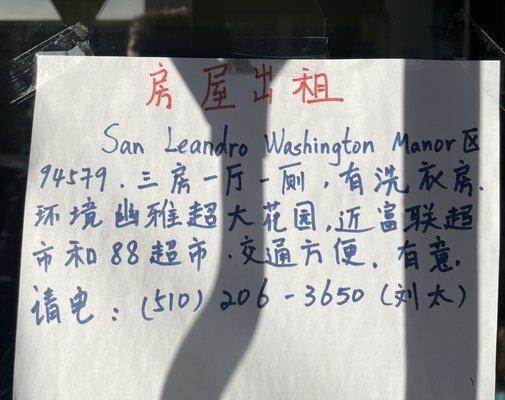 房屋出租
San Leandro Washington Manor区
94579.三房一厅一厕,有洗衣房.
环境幽雅超大花园,近富联超
市和88超市.交通方便,有意,
请电:(510)206-3650(刘太)